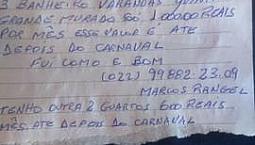 3 BANHEIRO VARANDAS QUIN
GRANDE MURADO SÓ, 1.000.00 REAIS
POR MÊS ESSE VALOR E ATE
DEPOIS DO CARNAVAL
FUI COMO E BOM
(022) 99882-23.09
MARCOS RANGEL
TENHO OUTRA 2 QUARTOS 600 REAIS
MÊS ATE DEPOIS DO CARNAVAL